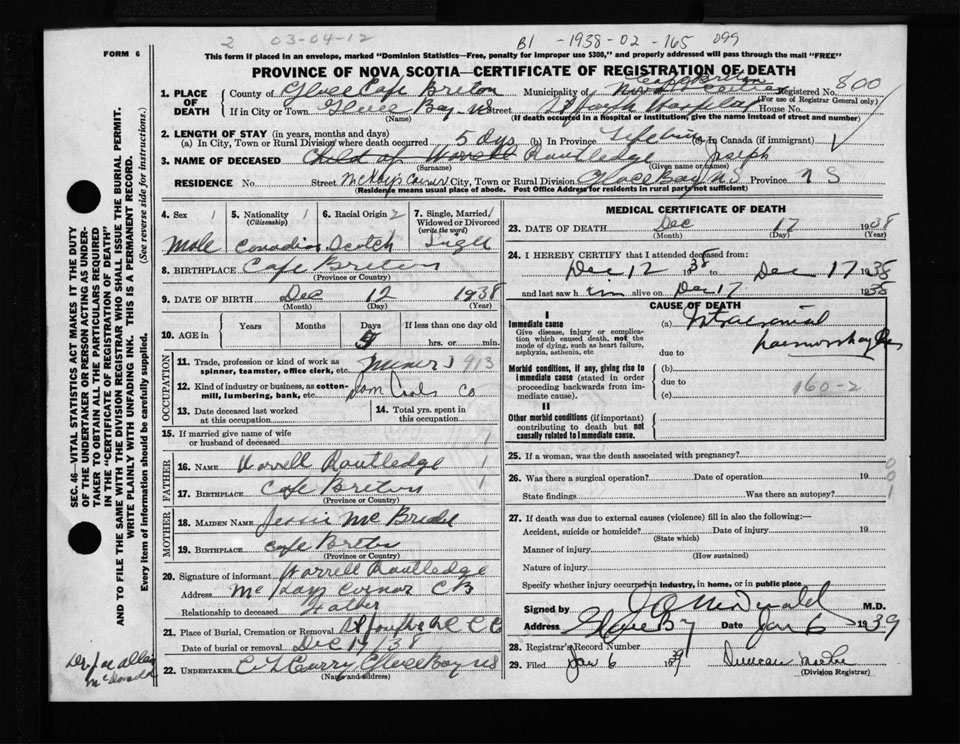 2 03-04-12 B1 -1938-02-165 099
FORM 6
This form if placed in an envelope, marked "Dominion Statistics—Free, penalty for improper use $300," and properly addressed will pass through the mail "FREE"
PROVINCE OF NOVA SCOTIA—CERTIFICATE OF REGISTRATION OF DEATH
1. PLACE OF DEATH
County of Cape Breton Municipality of Cape Breton Registered No. 800
(For use of Registrar General only)
If in City or Town Glace Bay NS Street St Joseph Hospital House No.
(Name) (If death occurred in a hospital or institution, give name instead of street and number)
2. LENGTH OF STAY (in years, months and days)
(a) In City, Town or Rural Division where death occurred 5 dys (b) In Province Lifetime (c) In Canada (if immigrant)
3. NAME OF DECEASED Child of Worrell Routledge Joseph
(Surname) (Given name or names)
RESIDENCE No. Street McKays Corner City, Town or Rural Division Glace Bay NS Province N S
(Residence means usual place of abode. Post Office Address for residents in rural parts not sufficient)
4. Sex 1 5. Nationality 1 (Citizenship) 6. Racial Origin 2 7. Single, Married, Widowed or Divorced (write the word) 1
Male Canadian Scotch Single
8. BIRTHPLACE Cape Breton
(Province or Country)
9. DATE OF BIRTH Dec 12 1938
(Month) (Day) (Year)
10. AGE in Years Months Days 5 If less than one day old hrs. or min.
OCCUPATION
11. Trade, profession or kind of work as spinner, teamster, office clerk, etc. Miner 913
12. Kind of industry or business, as cotton-mill, lumbering, bank, etc. Dom Coal Co
13. Date deceased last worked at this occupation 14. Total yrs. spent in this occupation
15. If married give name of wife or husband of deceased 1
FATHER
16. NAME Worrell Routledge 1
17. BIRTHPLACE Cape Breton
(Province or Country)
MOTHER
18. MAIDEN NAME Jessie McBride
19. BIRTHPLACE Cape Breton
(Province or Country)
20. Signature of informant Worrell Routledge
Address McKays Corner CB
Relationship to deceased Father
21. Place of Burial, Cremation or Removal St Joseph
Date of burial or removal Dec 17/38
22. UNDERTAKER Curry Glace Bay NS
(Name and address)
MEDICAL CERTIFICATE OF DEATH
23. DATE OF DEATH Dec 17 1938
(Month) (Day) (Year)
24. I HEREBY CERTIFY that I attended deceased from:
Dec 12 1938 to Dec 17 1938
and last saw him alive on Dec 17 1938
CAUSE OF DEATH
I
Immediate cause (a) Intracranial
Give disease, injury, or complication which caused death, not the mode of dying, such as heart failure, asphyxia, asthenia, etc
due to haemorrhage
Morbid conditions, if any, giving rise to immediate cause (stated in order proceeding backwards from immediate cause). (b)
due to 160-2
(c)
II
Other morbid conditions (if important) contributing to death but not causally related to immediate cause.
25. If a woman, was the death associated with pregnancy? 0
26. Was there a surgical operation? Date of operation 19 0
State findings Was there an autopsy? 1
27. If death was due to external causes (violence) fill in also the following:—
Accident, suicide or homicide? Date of injury 19
(State which)
Manner of injury
(How sustained)
Nature of injury
Specify whether injury occurred in industry, in home, or in public place
Signed by McDonald M.D.
Address Glace Bay Date Jan 6 1939
28. Registrar's Record Number
29. Filed Jan 6 1939 Duncan
(Division Registrar)
SEC. 46—VITAL STATISTICS ACT MAKES IT THE DUTY
OF THE UNDERTAKER OR PERSON ACTING AS UNDER-
TAKER TO OBTAIN ALL THE PARTICULARS REQUIRED
IN THE "CERTIFICATE OF REGISTRATION OF DEATH"
AND TO FILE THE SAME WITH THE DIVISION REGISTRAR WHO SHALL ISSUE THE BURIAL PERMIT.
WRITE PLAINLY WITH UNFADING INK. THIS IS A PERMANENT RECORD.
Every item of information should be carefully supplied. (See reverse side for instructions.)
McDonald